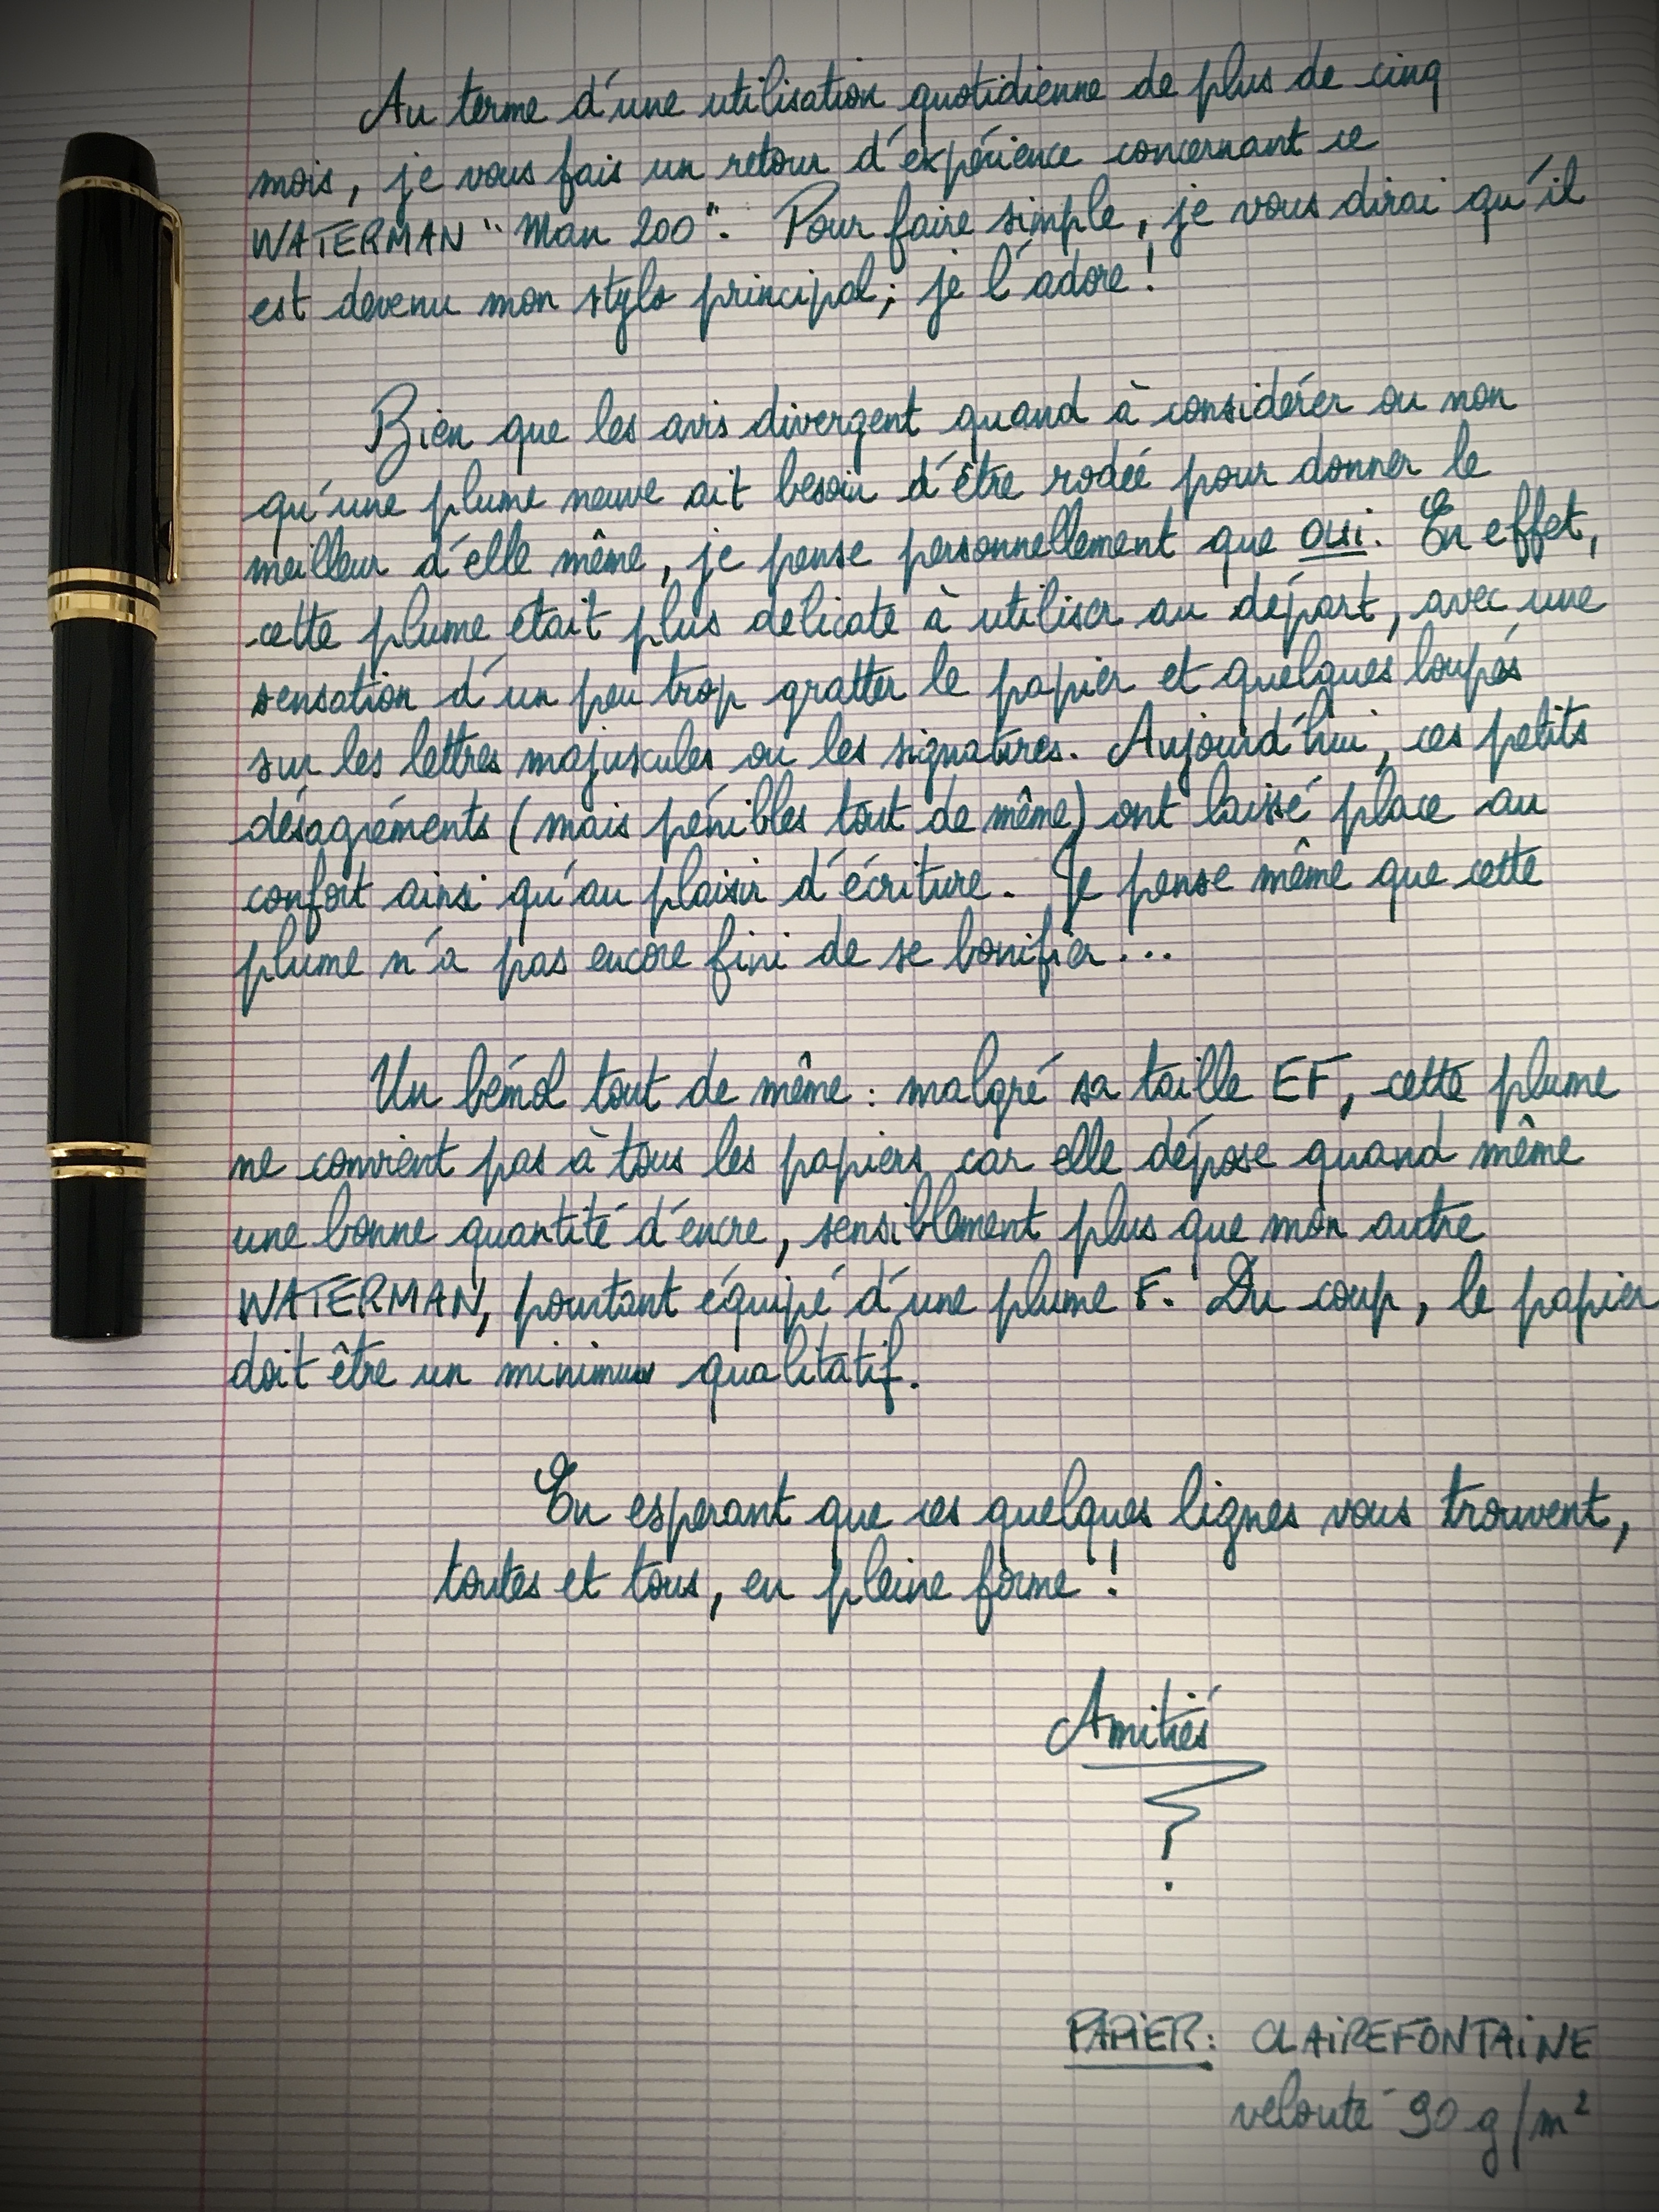 Au terme d'une utilisation quotidienne de plus de cinq
mois, je vous fais un retour d'expérience concernant ce
WATERMAN "Man 200". Pour faire simple, je vous dirai qu'il
est devenu mon stylo principal; je l'adore !
Bien que les avis divergent quand à considérer ou non
qu'une plume neuve ait besoin d'être rodée pour donner le
meilleur d'elle même, je pense personnellement que OUI. En effet,
cette plume était plus délicate à utiliser au départ, avec une
sensation d'un peu trop gratter le papier et quelques loupés
sur les lettres majuscules ou les signatures. Aujourd'hui, ces petits
désagréments (mais pénibles tout de même) ont laissé place au
confort ainsi qu'au plaisir d'écriture. Je pense même que cette
plume n'a pas encore fini de se bonifier...
Un bémol tout de même : malgré sa taille EF, cette plume
ne convient pas à tous les papiers car elle dépose quand même
une bonne quantité d'encre, sensiblement plus que mon autre
WATERMAN, pourtant équipé d'une plume F. Du coup, le papier
doit être un minimum qualitatif.
En espérant que ces quelques lignes vous trouvent,
toutes et tous, en pleine forme !
Amitiés
PAPIER : CLAIREFONTAINE
velouté 90 g/m²